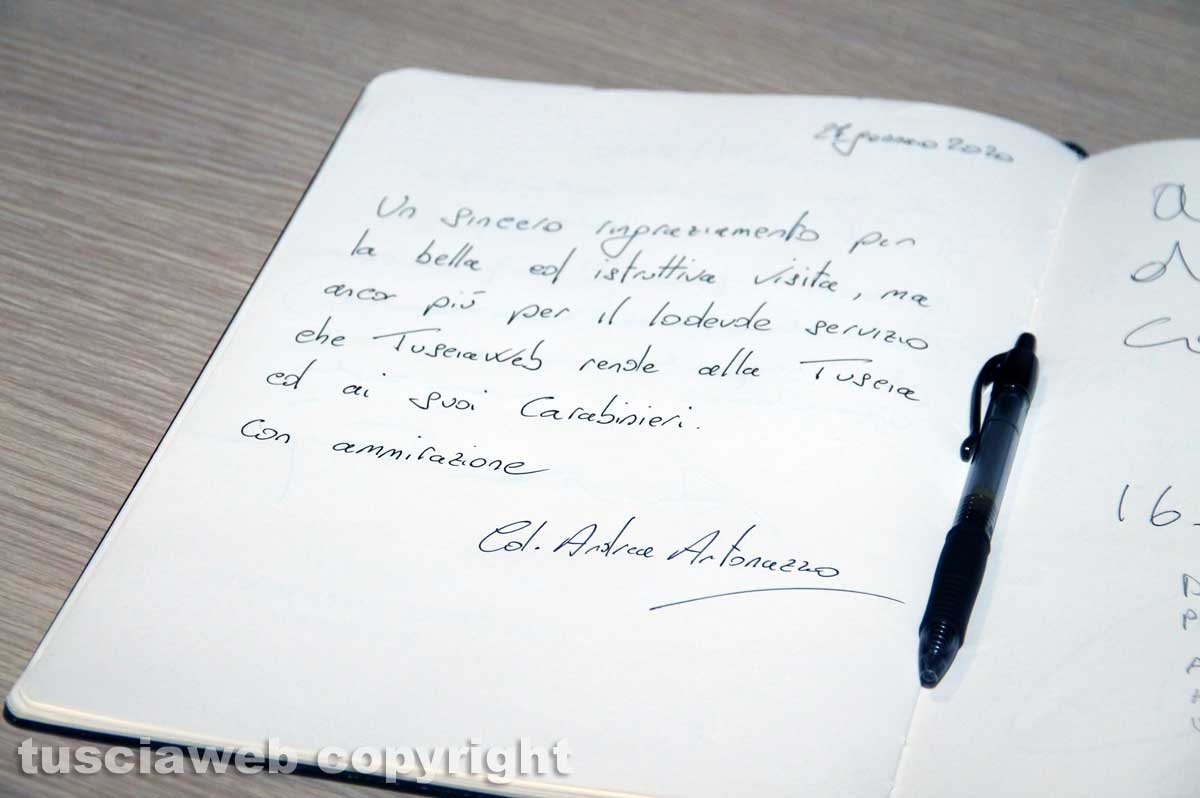 gennaio 2020
Un sincero ringraziamento per
la bella ed istruttiva visita, ma
ancor più per il lodevole servizio
che TusciaWeb rende alla Tuscia
ed ai suoi Carabinieri.
Con ammirazione
Col. Andrea Antonazzo
16.
tusciaweb copyright